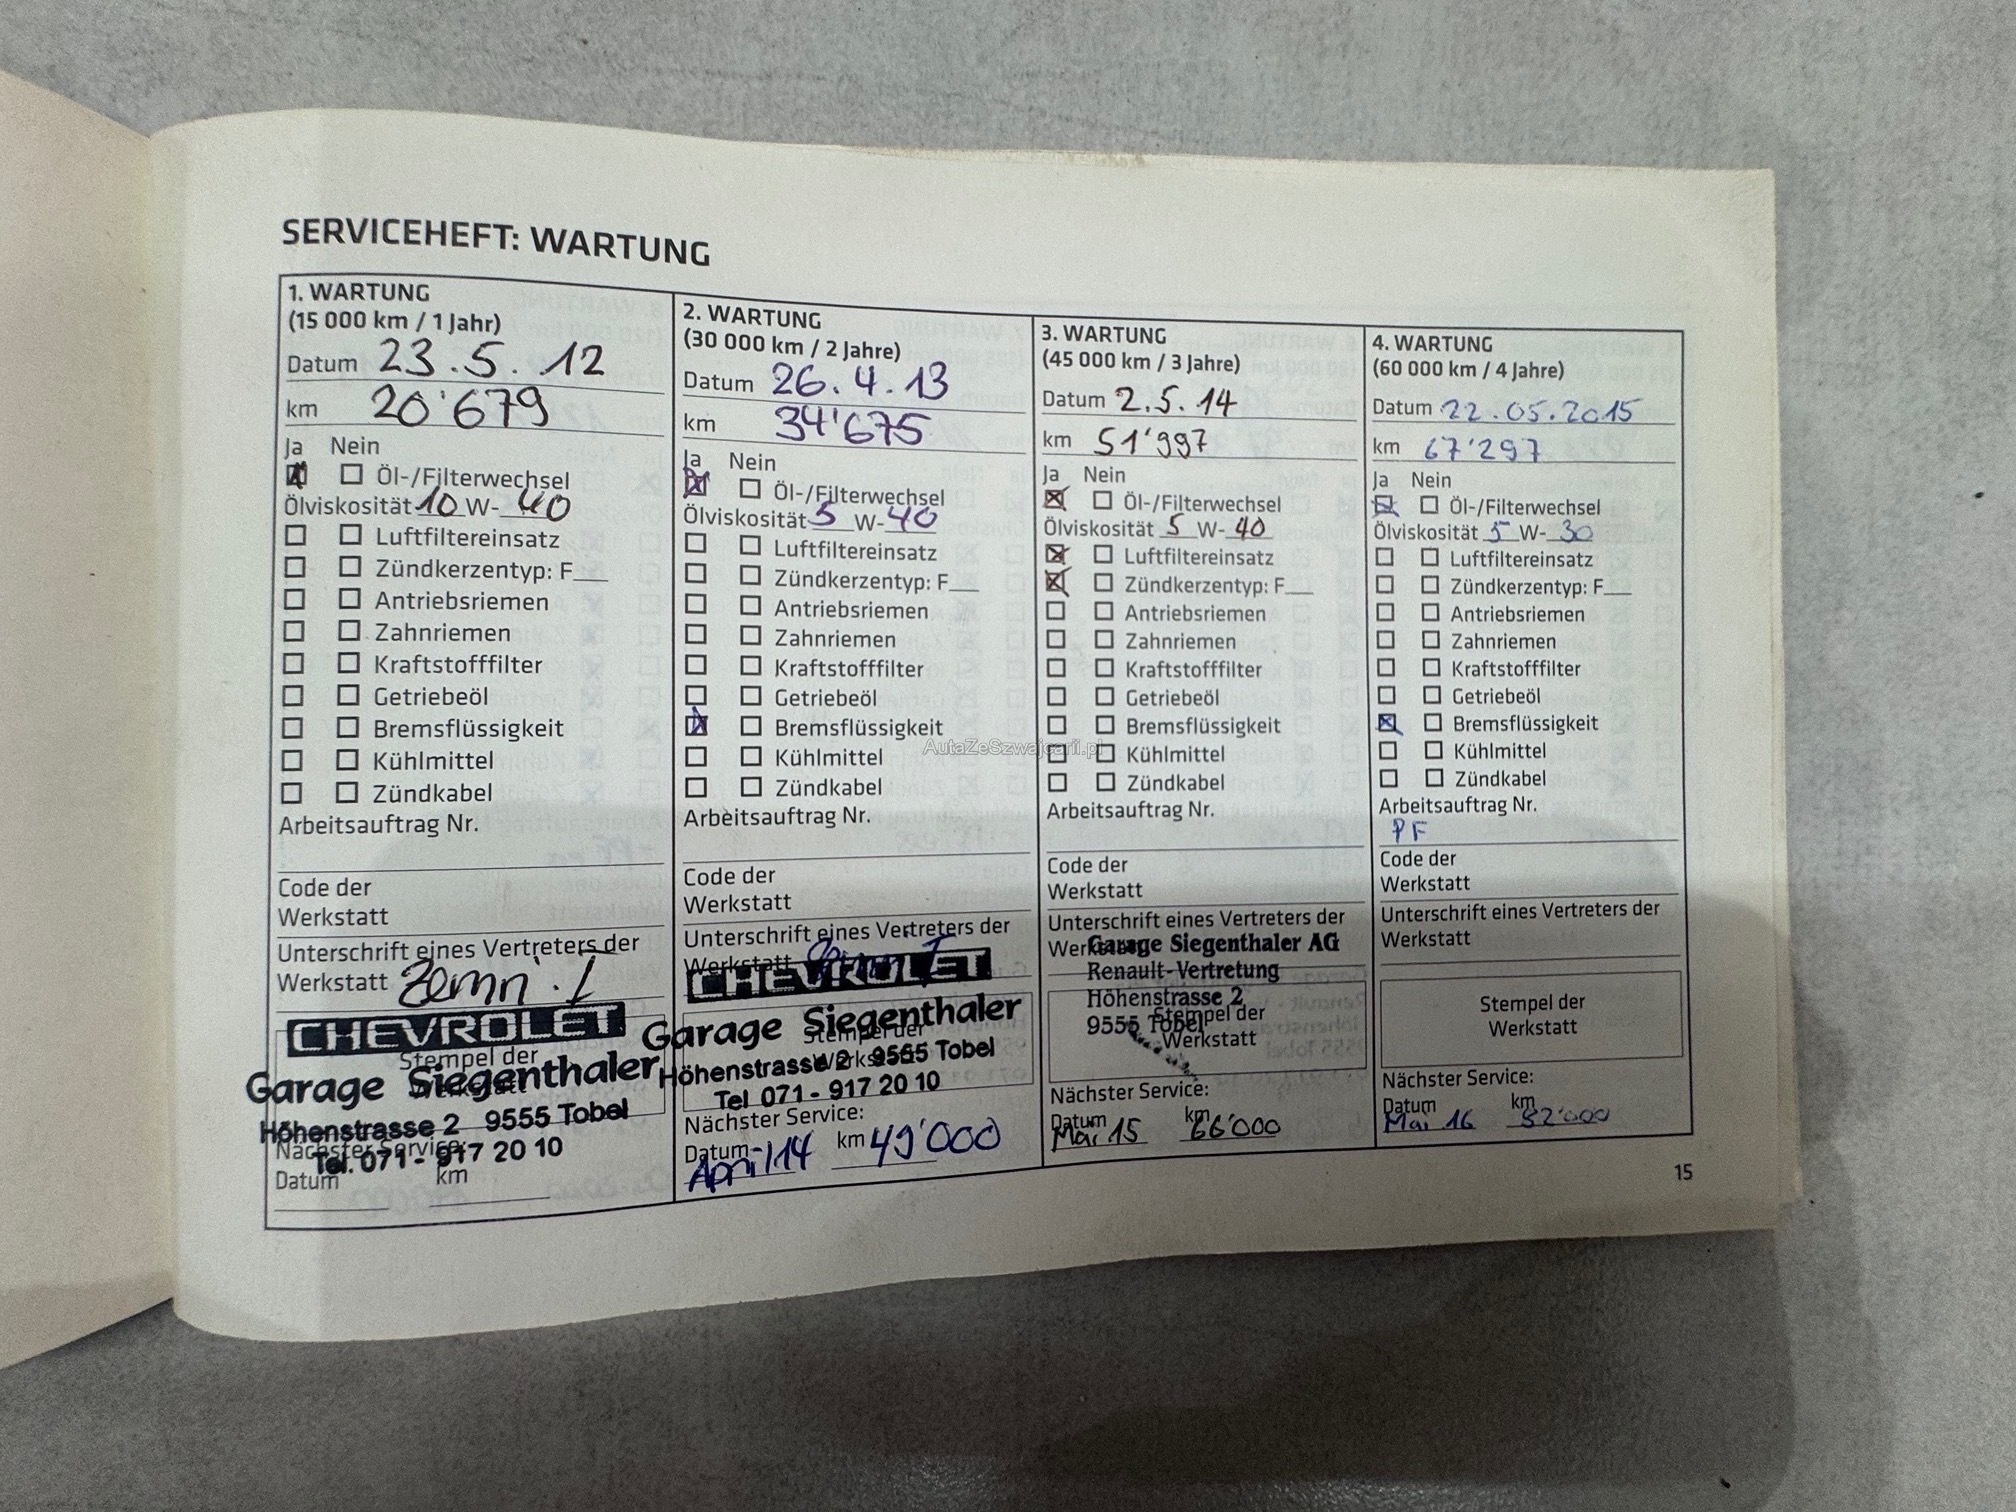 SERVICEHEFT: WARTUNG
1. WARTUNG
(15 000 km / 1 Jahr)
Datum 23.5.12
km 20'679
Ja Nein
Öl-/Filterwechsel
Ölviskosität 10 W- 40
Luftfiltereinsatz
Zündkerzentyp: F__
Antriebsriemen
Zahnriemen
Kraftstofffilter
Getriebeöl
Bremsflüssigkeit
Kühlmittel
Zündkabel
Arbeitsauftrag Nr.
Code der
Werkstatt
Unterschrift eines Vertreters der
Werkstatt
CHEVROLET
Stempel der
Garage Siegenthaler
Höhenstrasse 2 9555 Tobel
Nächster Service:
Tel. 071 - 917 20 10
Datum km
2. WARTUNG
(30 000 km / 2 Jahre)
Datum 26.4.13
km 34'675
Ja Nein
Öl-/Filterwechsel
Ölviskosität 5 W- 40
Luftfiltereinsatz
Zündkerzentyp: F__
Antriebsriemen
Zahnriemen
Kraftstofffilter
Getriebeöl
Bremsflüssigkeit
Kühlmittel
Zündkabel
Arbeitsauftrag Nr.
Code der
Werkstatt
Unterschrift eines Vertreters der
Werkstatt
CHEVROLET
Garage Siegenthaler
Stempel der
Höhenstrasse 2 9555 Tobel
Tel 071 - 917 20 10
Nächster Service:
Datum April 14 km 49'000
3. WARTUNG
(45 000 km / 3 Jahre)
Datum 2.5.14
km 51'997
Ja Nein
Öl-/Filterwechsel
Ölviskosität 5 W- 40
Luftfiltereinsatz
Zündkerzentyp: F__
Antriebsriemen
Zahnriemen
Kraftstofffilter
Getriebeöl
Bremsflüssigkeit
Kühlmittel
Zündkabel
Arbeitsauftrag Nr.
Code der
Werkstatt
Unterschrift eines Vertreters der
Werkstatt
Garage Siegenthaler AG
Renault-Vertretung
Höhenstrasse 2
9555 Tobel
Stempel der
Werkstatt
Nächster Service:
Datum Mai 15 km 66'000
4. WARTUNG
(60 000 km / 4 Jahre)
Datum 22.05.2015
km 67'297
Ja Nein
Öl-/Filterwechsel
Ölviskosität 5 W- 30
Luftfiltereinsatz
Zündkerzentyp: F__
Antriebsriemen
Zahnriemen
Kraftstofffilter
Getriebeöl
Bremsflüssigkeit
Kühlmittel
Zündkabel
Arbeitsauftrag Nr.
PF
Code der
Werkstatt
Unterschrift eines Vertreters der
Werkstatt
Stempel der
Werkstatt
Nächster Service:
Datum Mai 16 km 82'000
15
AutaZeSzwajcarii.pl